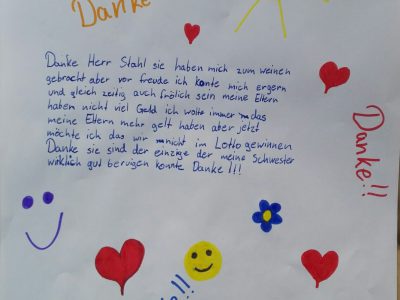 Danke
Danke Herr Stahl sie haben mich zum weinen
gebracht aber vor freude ich konte mich ergern
und gleich zeitig auch frölich sein meine Eltern
haben nicht viel Geld ich wollte immer das
meine Eltern mehr gelt haben aber jetzt
möchte ich das wir nicht im Lotto gewinnen
Danke sie sind der einzige der meine Schwester
wirklich gut beruigen konnte Danke!!!
Danke!!